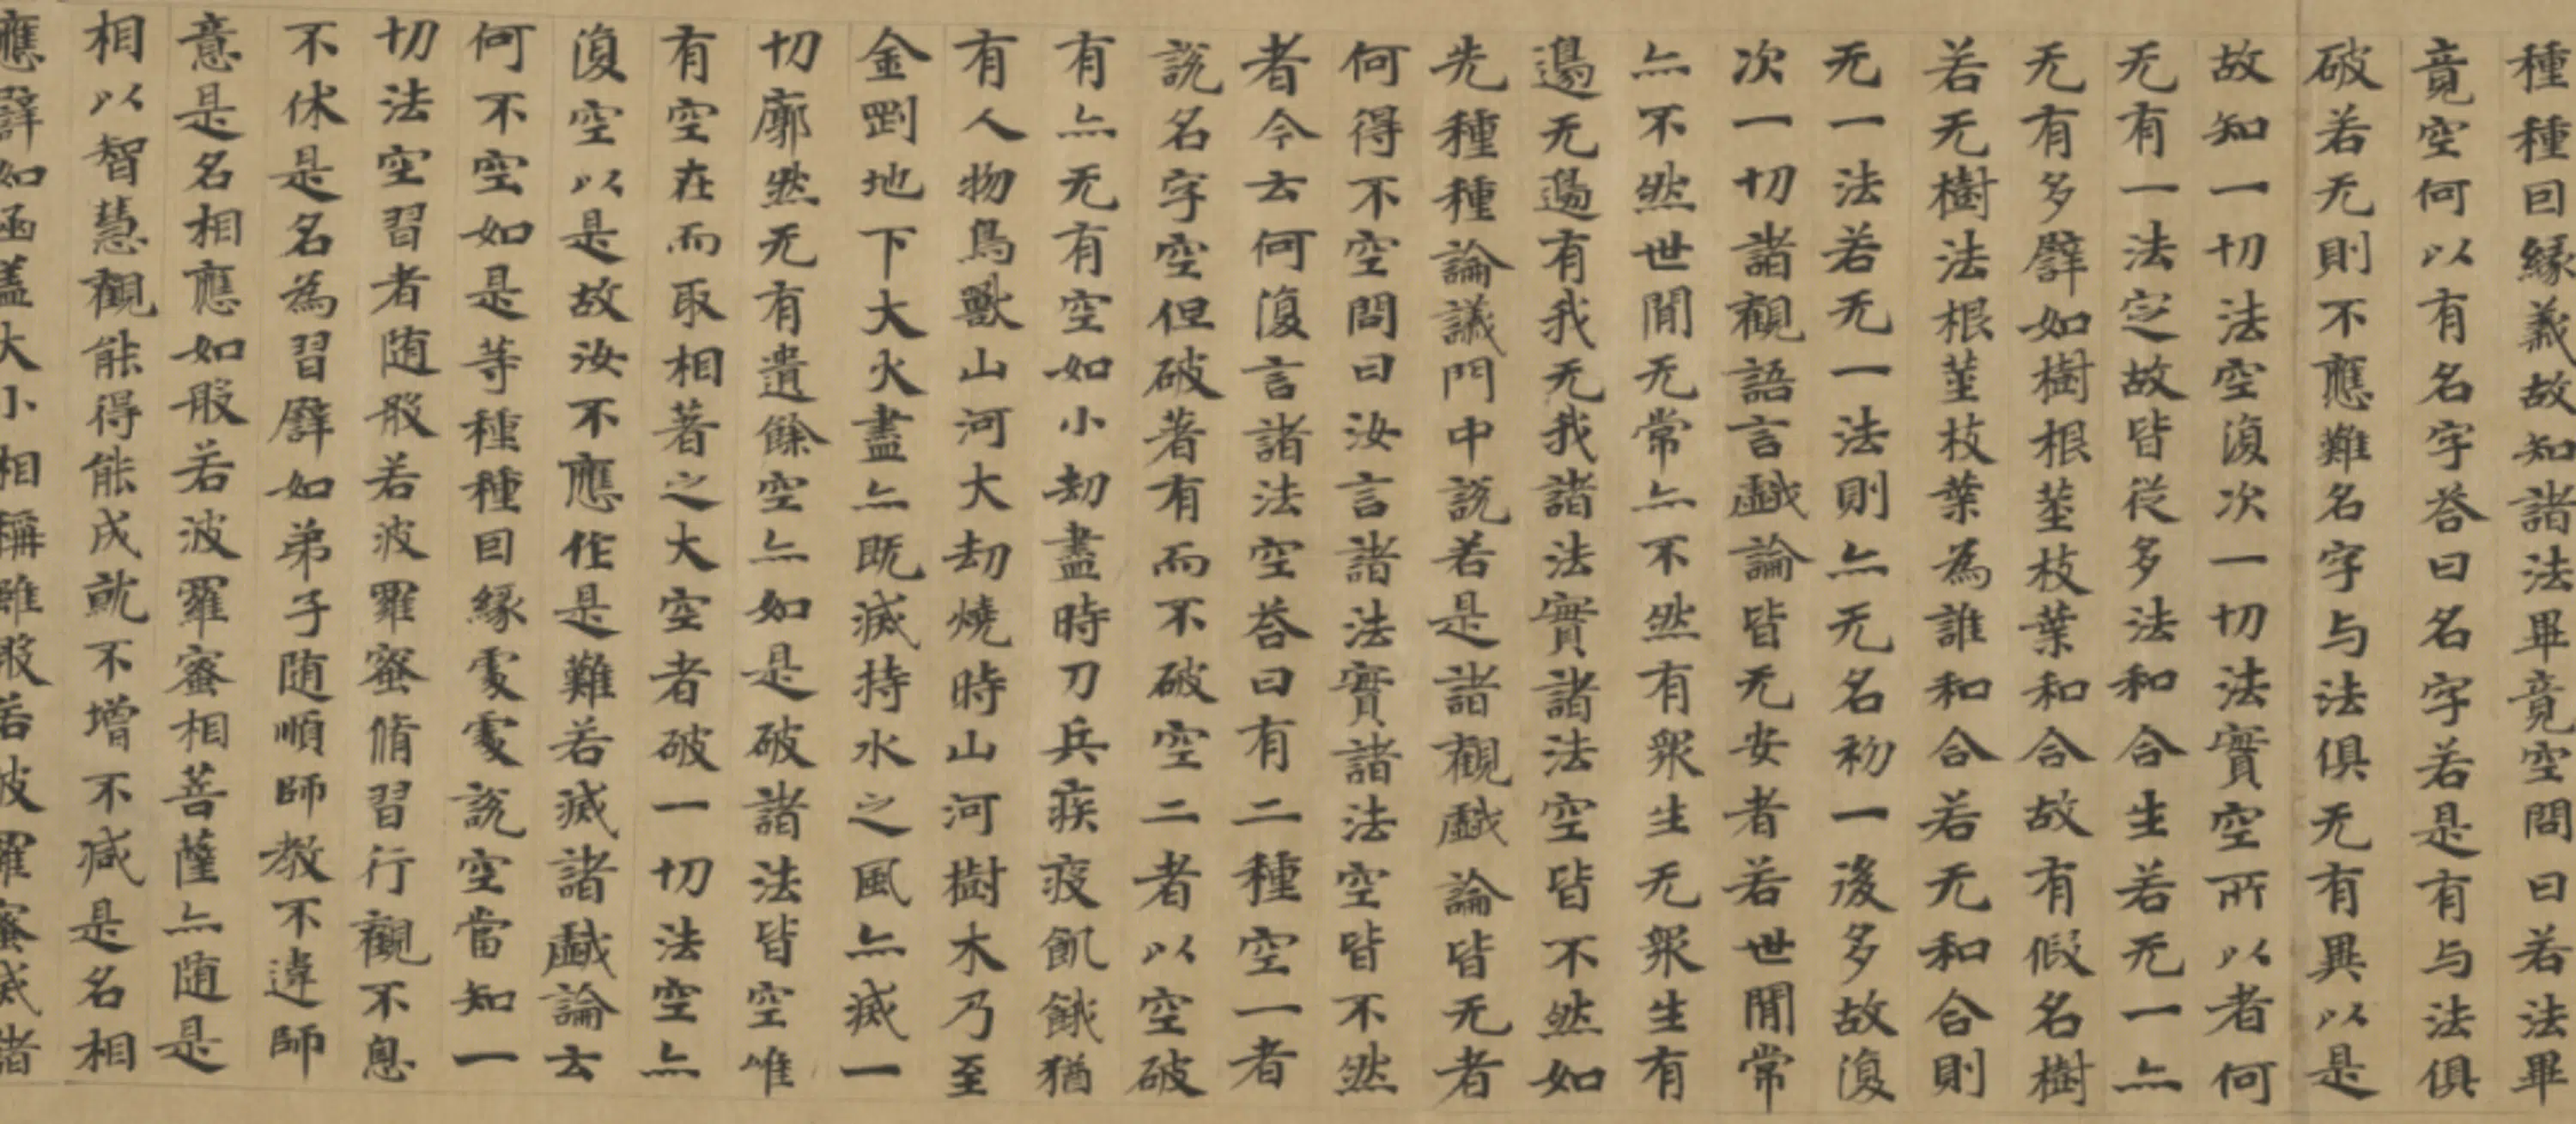 種種因縁義故知諸法畢竟空問曰若法畢
竟空何以有名字荅曰名字若是有与法俱
破若无則不應難名字与法俱无有異以是
故知一切法空復次一切法實空所以者何
无有一法定故皆從多法和合生若无一亦
无有多譬如樹根莖枝葉和合故有假名樹
若无樹法根莖枝葉為誰和合若无和合則
无一法若无一法則亦无名初一後多故復
次一切諸觀語言戲論皆无安者若世閒常
亦不然世閒无常亦不然有衆生无衆生有
邊无邊有我无我諸法實諸法空皆不然如
先種種論議門中說若是諸觀戲論皆无者
何得不空問曰汝言諸法實諸法空皆不然
者今云何復言諸法空荅曰有二種空一者
說名字空但破著有而不破空二者以空破
有亦无有空如小劫盡時刀兵疾疫飢餓猶
有人物鳥獸山河大劫燒時山河樹木乃至
金剛地下大火盡亦既滅持水之風亦滅一
切廓然无有遺餘空亦如是破諸法皆空唯
有空在而取相著之大空者破一切法空亦
復空以是故汝不應作是難若滅諸戲論云
何不空如是等種種因縁處處說空當知一
切法空習者随般若波羅蜜脩習行觀不息
不休是名為習譬如弟子随順師教不違師
意是名相應如般若波羅蜜相菩薩亦随是
相以智慧觀能得能成就不增不减是名相
應譬如函蓋大小相稱雖般若波羅蜜滅諸